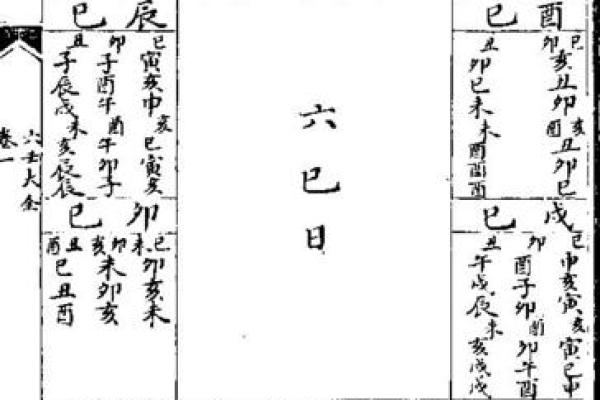 酉巳
巳亥丑卯亥丑卯巳
卯酉
丑卯巳未未酉酉酉
戌巳
巳申亥寅亥寅巳申
卯酉子卯酉卯午酉
丑午戌辰未亥戌戌
六巳日
辰巳
巳寅亥申亥巳寅亥
卯子酉午酉午卯子
丑子辰戌未亥辰辰
卯巳
巳卯亥未未
卯未卯亥亥
丑巳丑酉酉
六壬大全
卷一